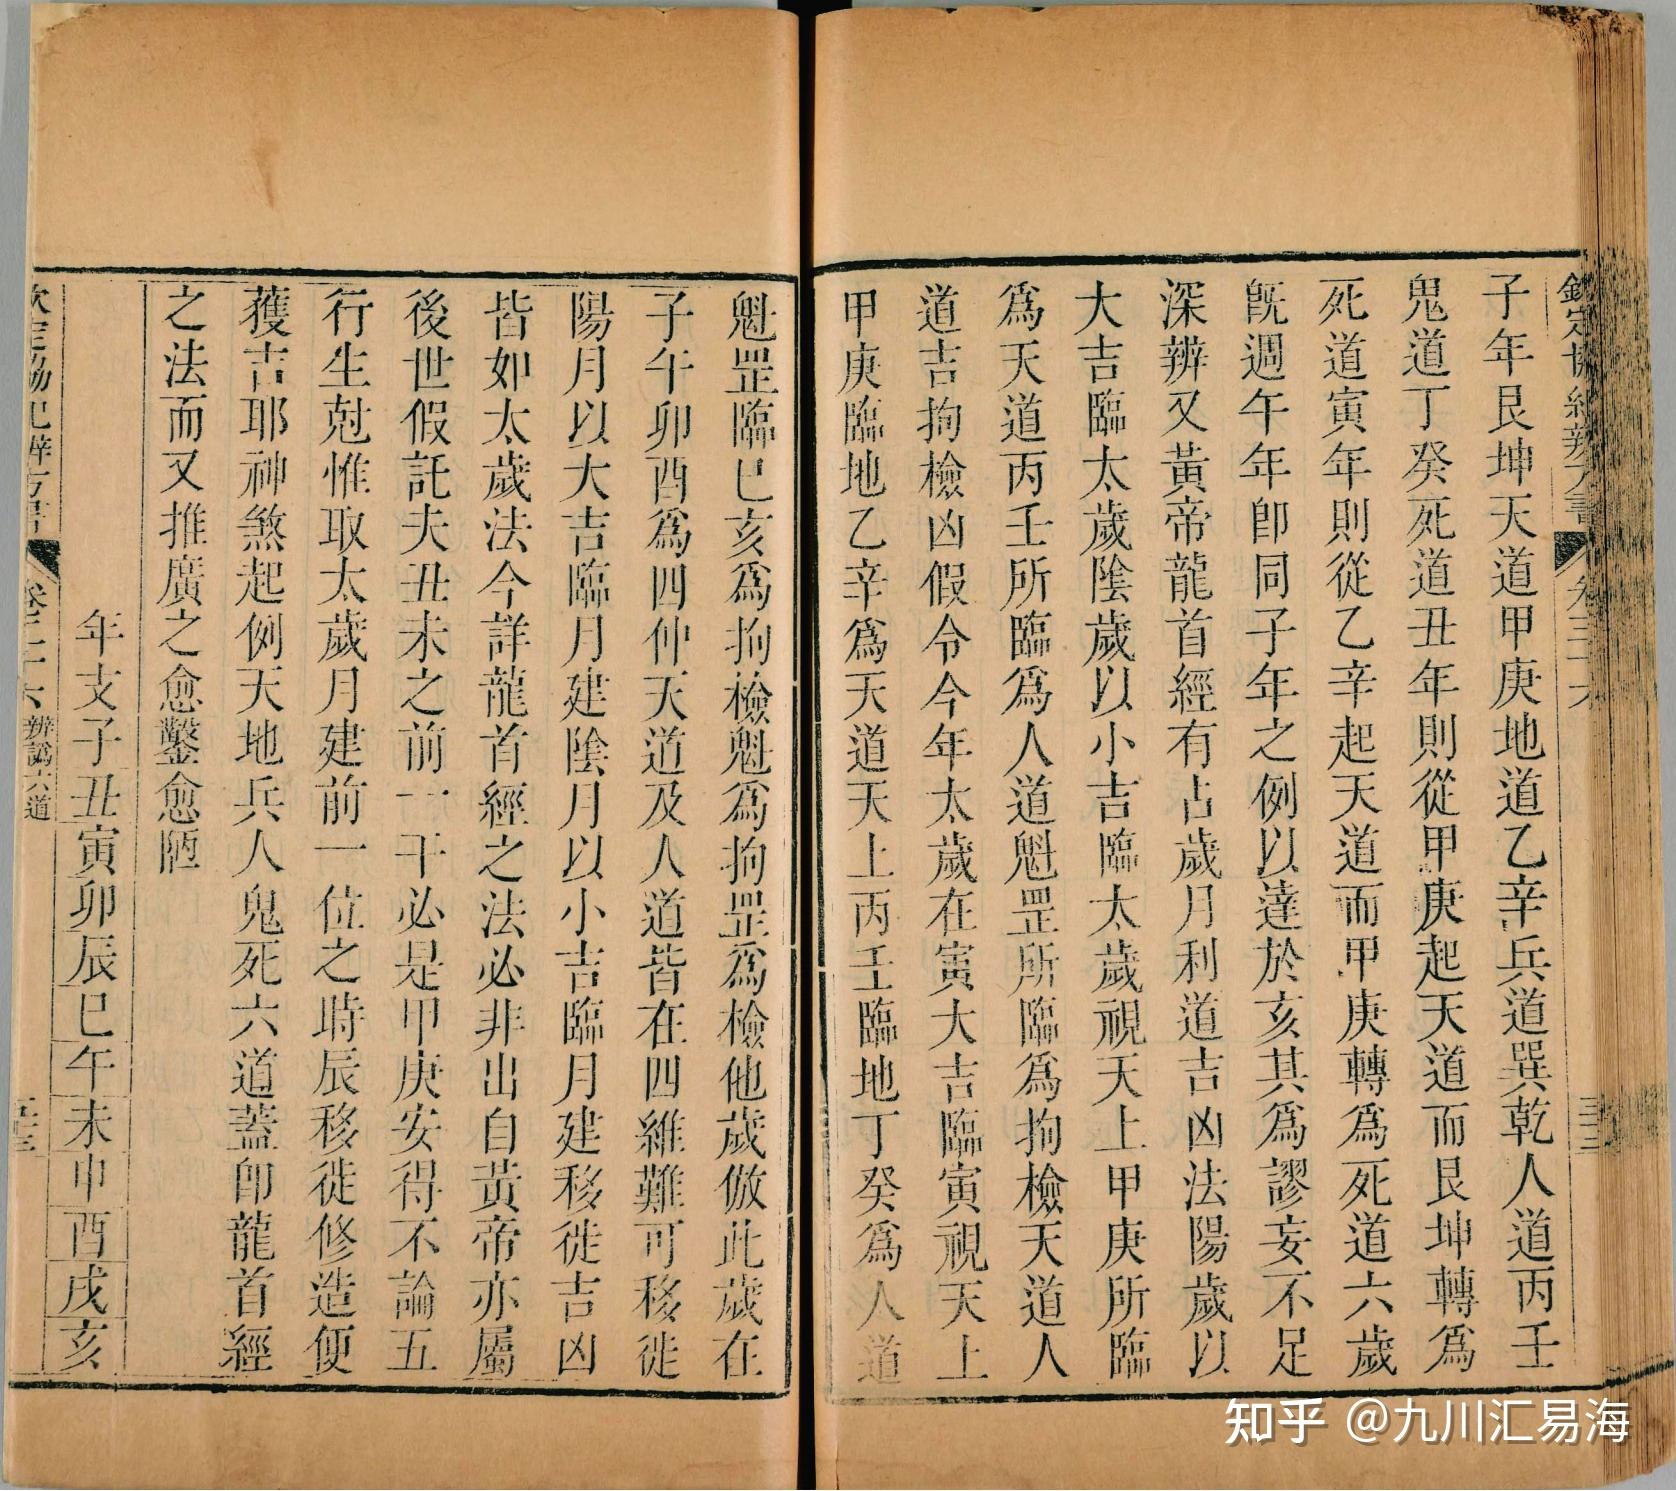 欽定協紀辨方書 卷三十六 三十三
子年艮坤天道甲庚地道乙辛兵道巽乾人道丙壬
鬼道丁癸死道丑年則從甲庚起天道而艮坤轉爲
死道寅年則從乙辛起天道而甲庚轉爲死道六歲
旣週午年卽同子年之例以達於亥其爲謬妄不足
深辨又黃帝龍首經有占歲月利道吉凶法陽歲以
大吉臨太歲陰歲以小吉臨太歲視天上甲庚所臨
爲天道丙壬所臨爲人道魁罡所臨爲拘檢天道人
道吉拘檢凶假令今年太歲在寅大吉臨寅視天上
甲庚臨地乙辛爲天道天上丙壬臨地丁癸爲人道
魁罡臨巳亥爲拘檢魁爲拘罡爲檢他歲倣此歲在
子午卯酉爲四仲天道及人道皆在四維難可移徙
陽月以大吉臨月建陰月以小吉臨月建移徙吉凶
皆如太歲法今詳龍首經之法必非出自黃帝亦屬
後世假託夫丑未之前一干必是甲庚安得不論五
行生尅惟取太歲月建前一位之時辰移徙修造便
獲吉耶神煞起例天地兵人鬼死六道蓋卽龍首經
之法而又推廣之愈鑿愈陋
年支子丑寅卯辰巳午未申酉戌亥
欽定協紀辨方書 卷三十六 辨譌六道